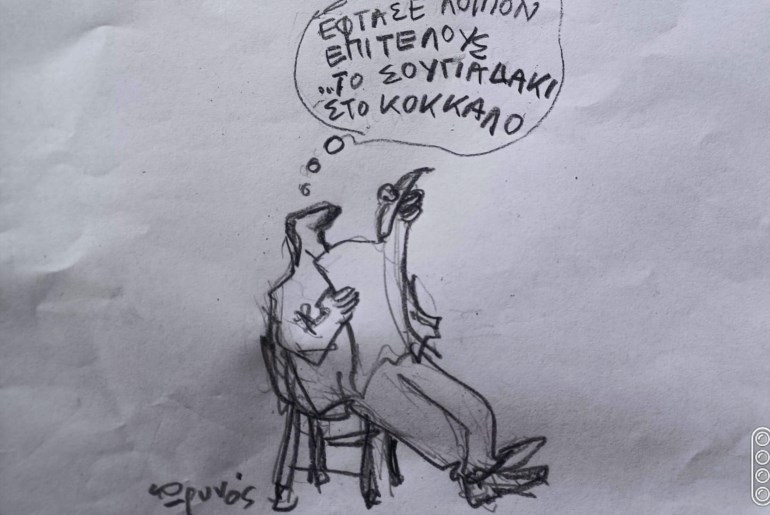 ΕΦΤΑΣΕ ΛΟΙΠΟΝ
ΕΠΙΤΕΛΟΥΣ
...ΤΟ ΣΟΥΓΙΑΔΑΚΙ
ΣΤΟ ΚΟΚΚΑΛΟ